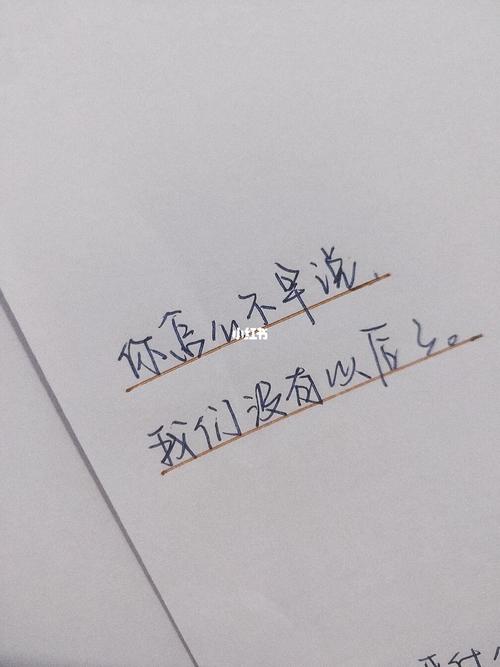 你怎么不早说，
我们没有以后了。
小红书